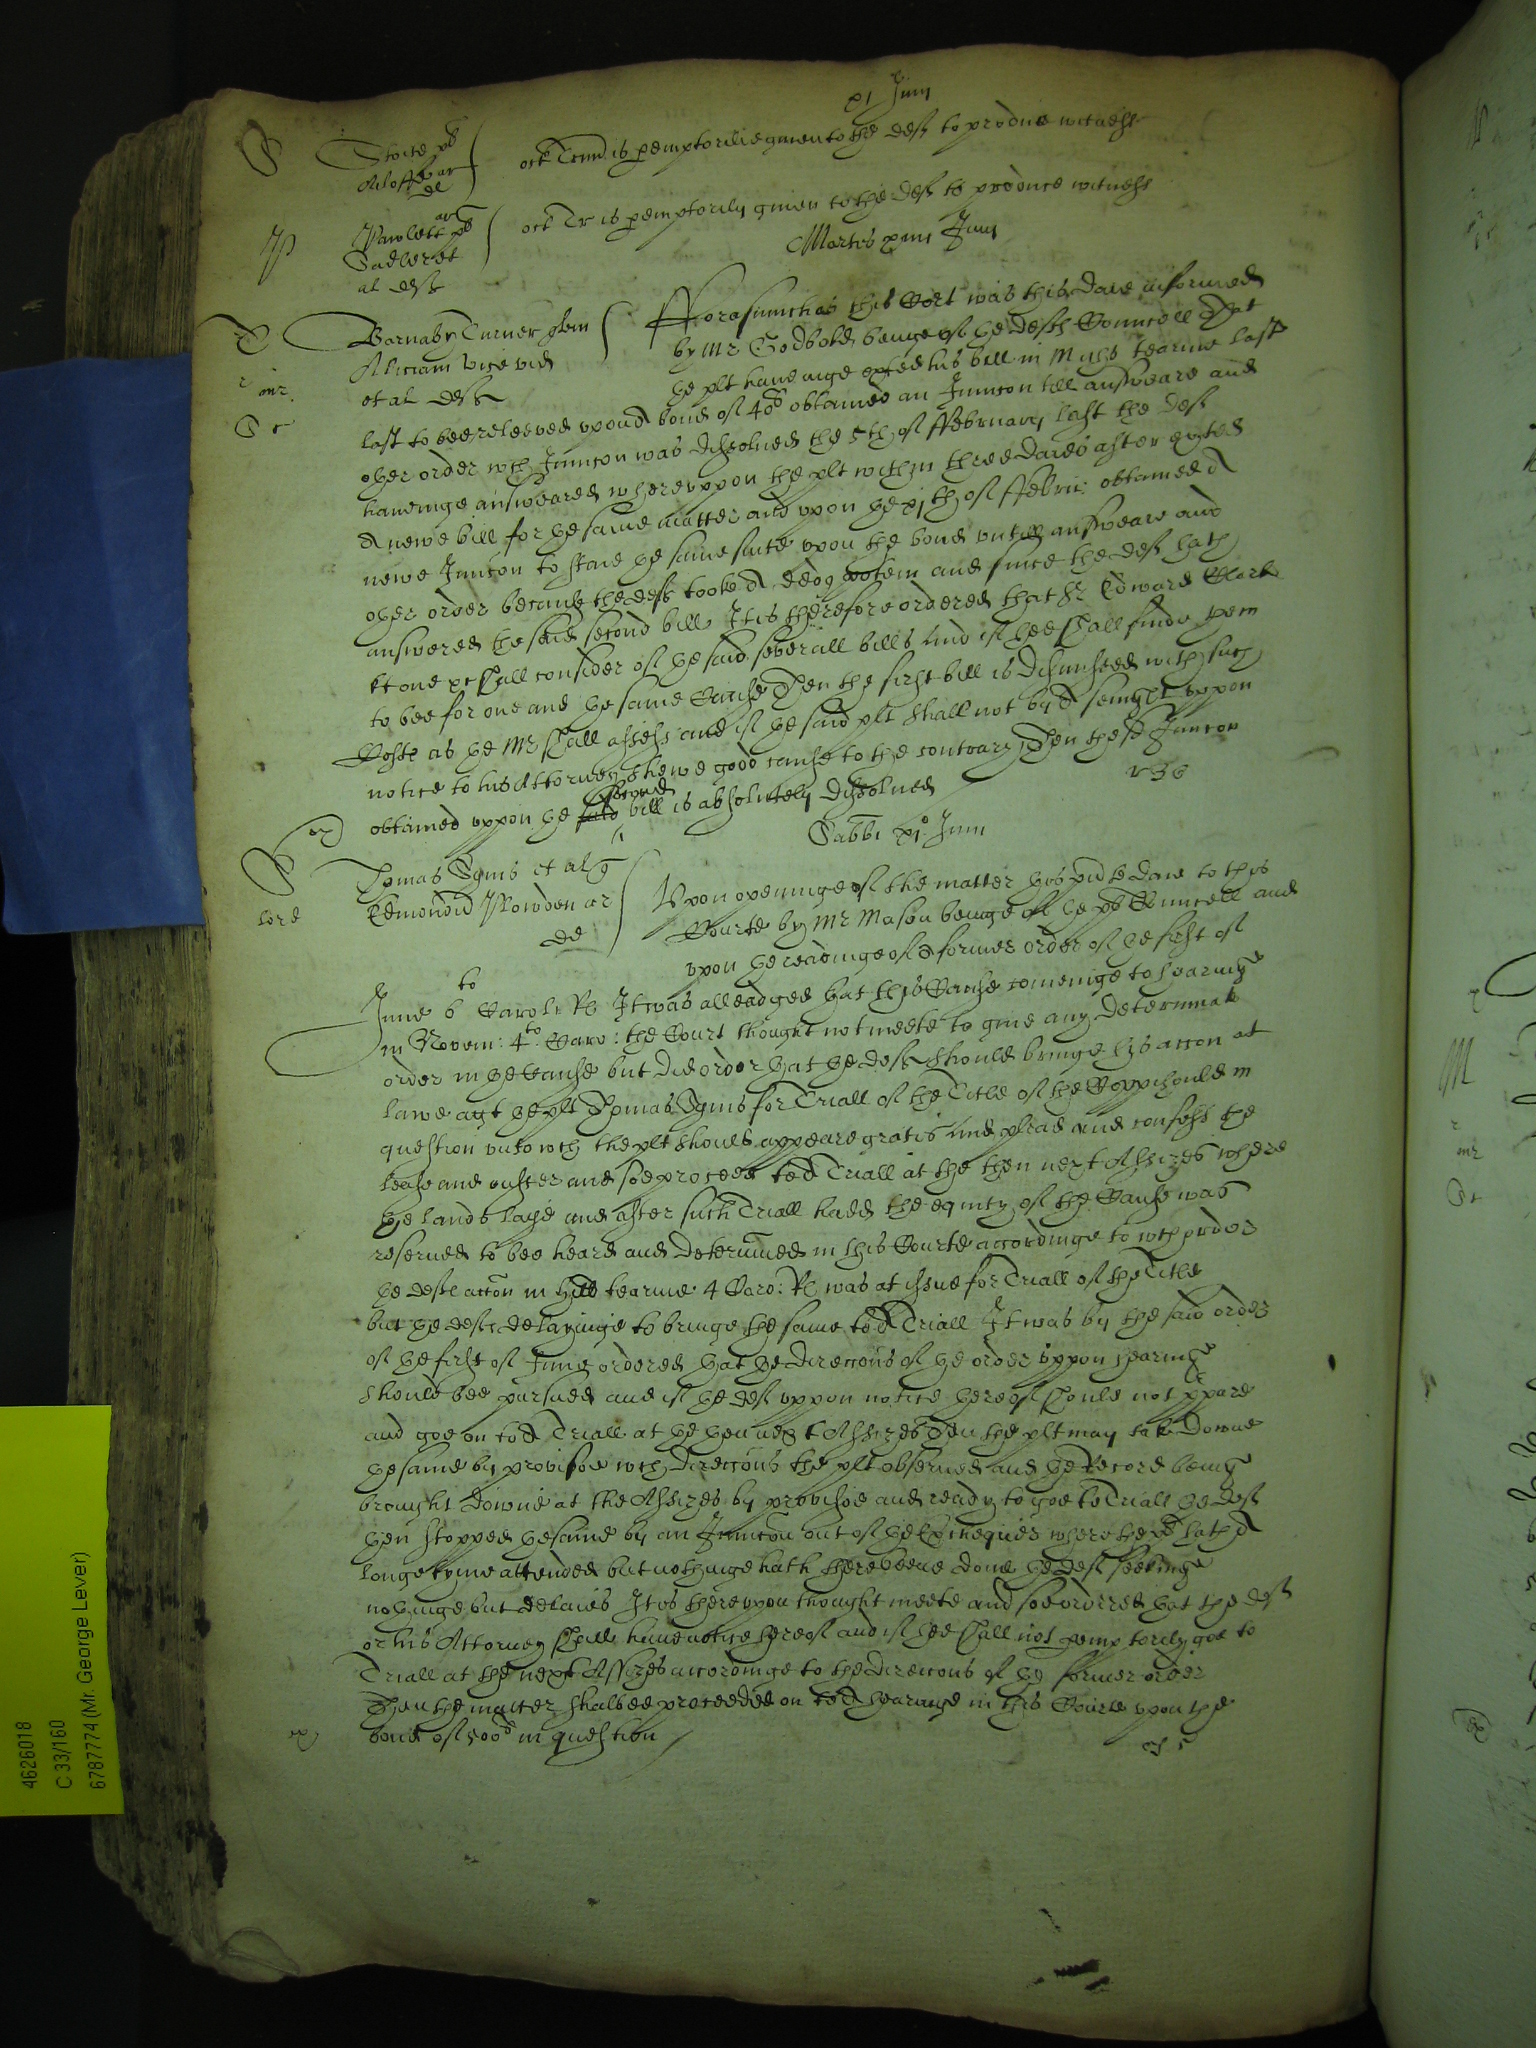 xi Junij
S Stoite pl
oct Trin is peremptorilie given to the deft to produce witness
de
P Pawlett pl
oct Tr is peremptorily given to the deft to produce witness
Sadler et
al deftes
Martis Junij
T Barnaby Turner quer
Fforasmuch as this Cort was this daie informed
Aliciam Vice vid
by Mr Godbold beinge of the deftes Councell That
mr.
et al deftes
the plt haveinge exhted his bill in Michs tearme last
last to bee releeved upon a bond of 40s obtained an Junccon till answeare and
other order wch Junccon was dissolved the 5th of ffebruary last the deft
haveinge answeared whereuppon the plt within three daies after exhted
a newe bill for the same matter and upon the xjth of ffebru: obtained a
newe Junccon to staie the same suite upon the bond untill answeare and
other order because the deft tooke a ded potem and since the deft hath
answered the said second bill It is therefore ordered that Sr Edward Clarke
kt one &c shall consider of the said severall bills And if hee shall finde them
to bee for one and the same Cause Then the first bill is dismissed with such
Costs as the Mr shall assess and if the said plt shall not by a sevenight uppon
notice to his Attorney shewe good cause to the contrary Then the sd Junccon
obtained uppon the said second bill is absolutely dissolved
Sabbi Junij
Thomas Ignis et al q
Upon openinge of the matter this pnte daie to this
lord
Edmondu Plowden ar
Courte by Mr Mason beinge of the pls Councell and
de
upon the readinge of a former order of the first of
June 6to Caroli R It was alleadged that this Cause comeinge to hearing
in Novem: 4to Caro: the Court thought not meete to give any determinate
order in the Cause but did order that the deft should bringe his accon at
lawe agt the plt Thomas Ignis for Triall of the Title of the Coppihould in
question unto wch the plt should appeare gratis and plead and confess the
lease and ouster and soe proceed to a Triall at the then next Assizes where
the lands laye and after such Triall hadd the equity of the Cause was
reserved to bee heard and determined in this Courte accordinge to wch order
the deftes accon in Hill tearme 4 Caro: R was at issue for Triall of the Title
but the deft delayinge to bringe the same to a Triall It was by the said order
of the first of June ordered that the direccons of the order uppon hearing
should bee pursued and if the deft uppon notice thereof should not ppare
and goe on to a Triall at the then next Assizes Then the plt may take downe
the same by provisoe wch direccons the plt observed and the Record being
brought downe at the Assizes by provisoe and ready to goe to Triall the deft
then stopped the same by an Junccon out of the Exchequer where the plt hath a
longe tyme attended but nothinge hath there beene done the deft seeking
nothinge but delaies It is thereuppon thought meete and soe ordered that the deft
or his Attorney shall have notice hereof and if hee shall not pemptorily goe to
Triall at the next Assizes accordinge to the direccons of the former order
Then the matter shalbee proceeded on to a hearinge in this Courte upon the
bond of 500l in question
4626018
C 33/160
6787774 (Mr. George Lever)